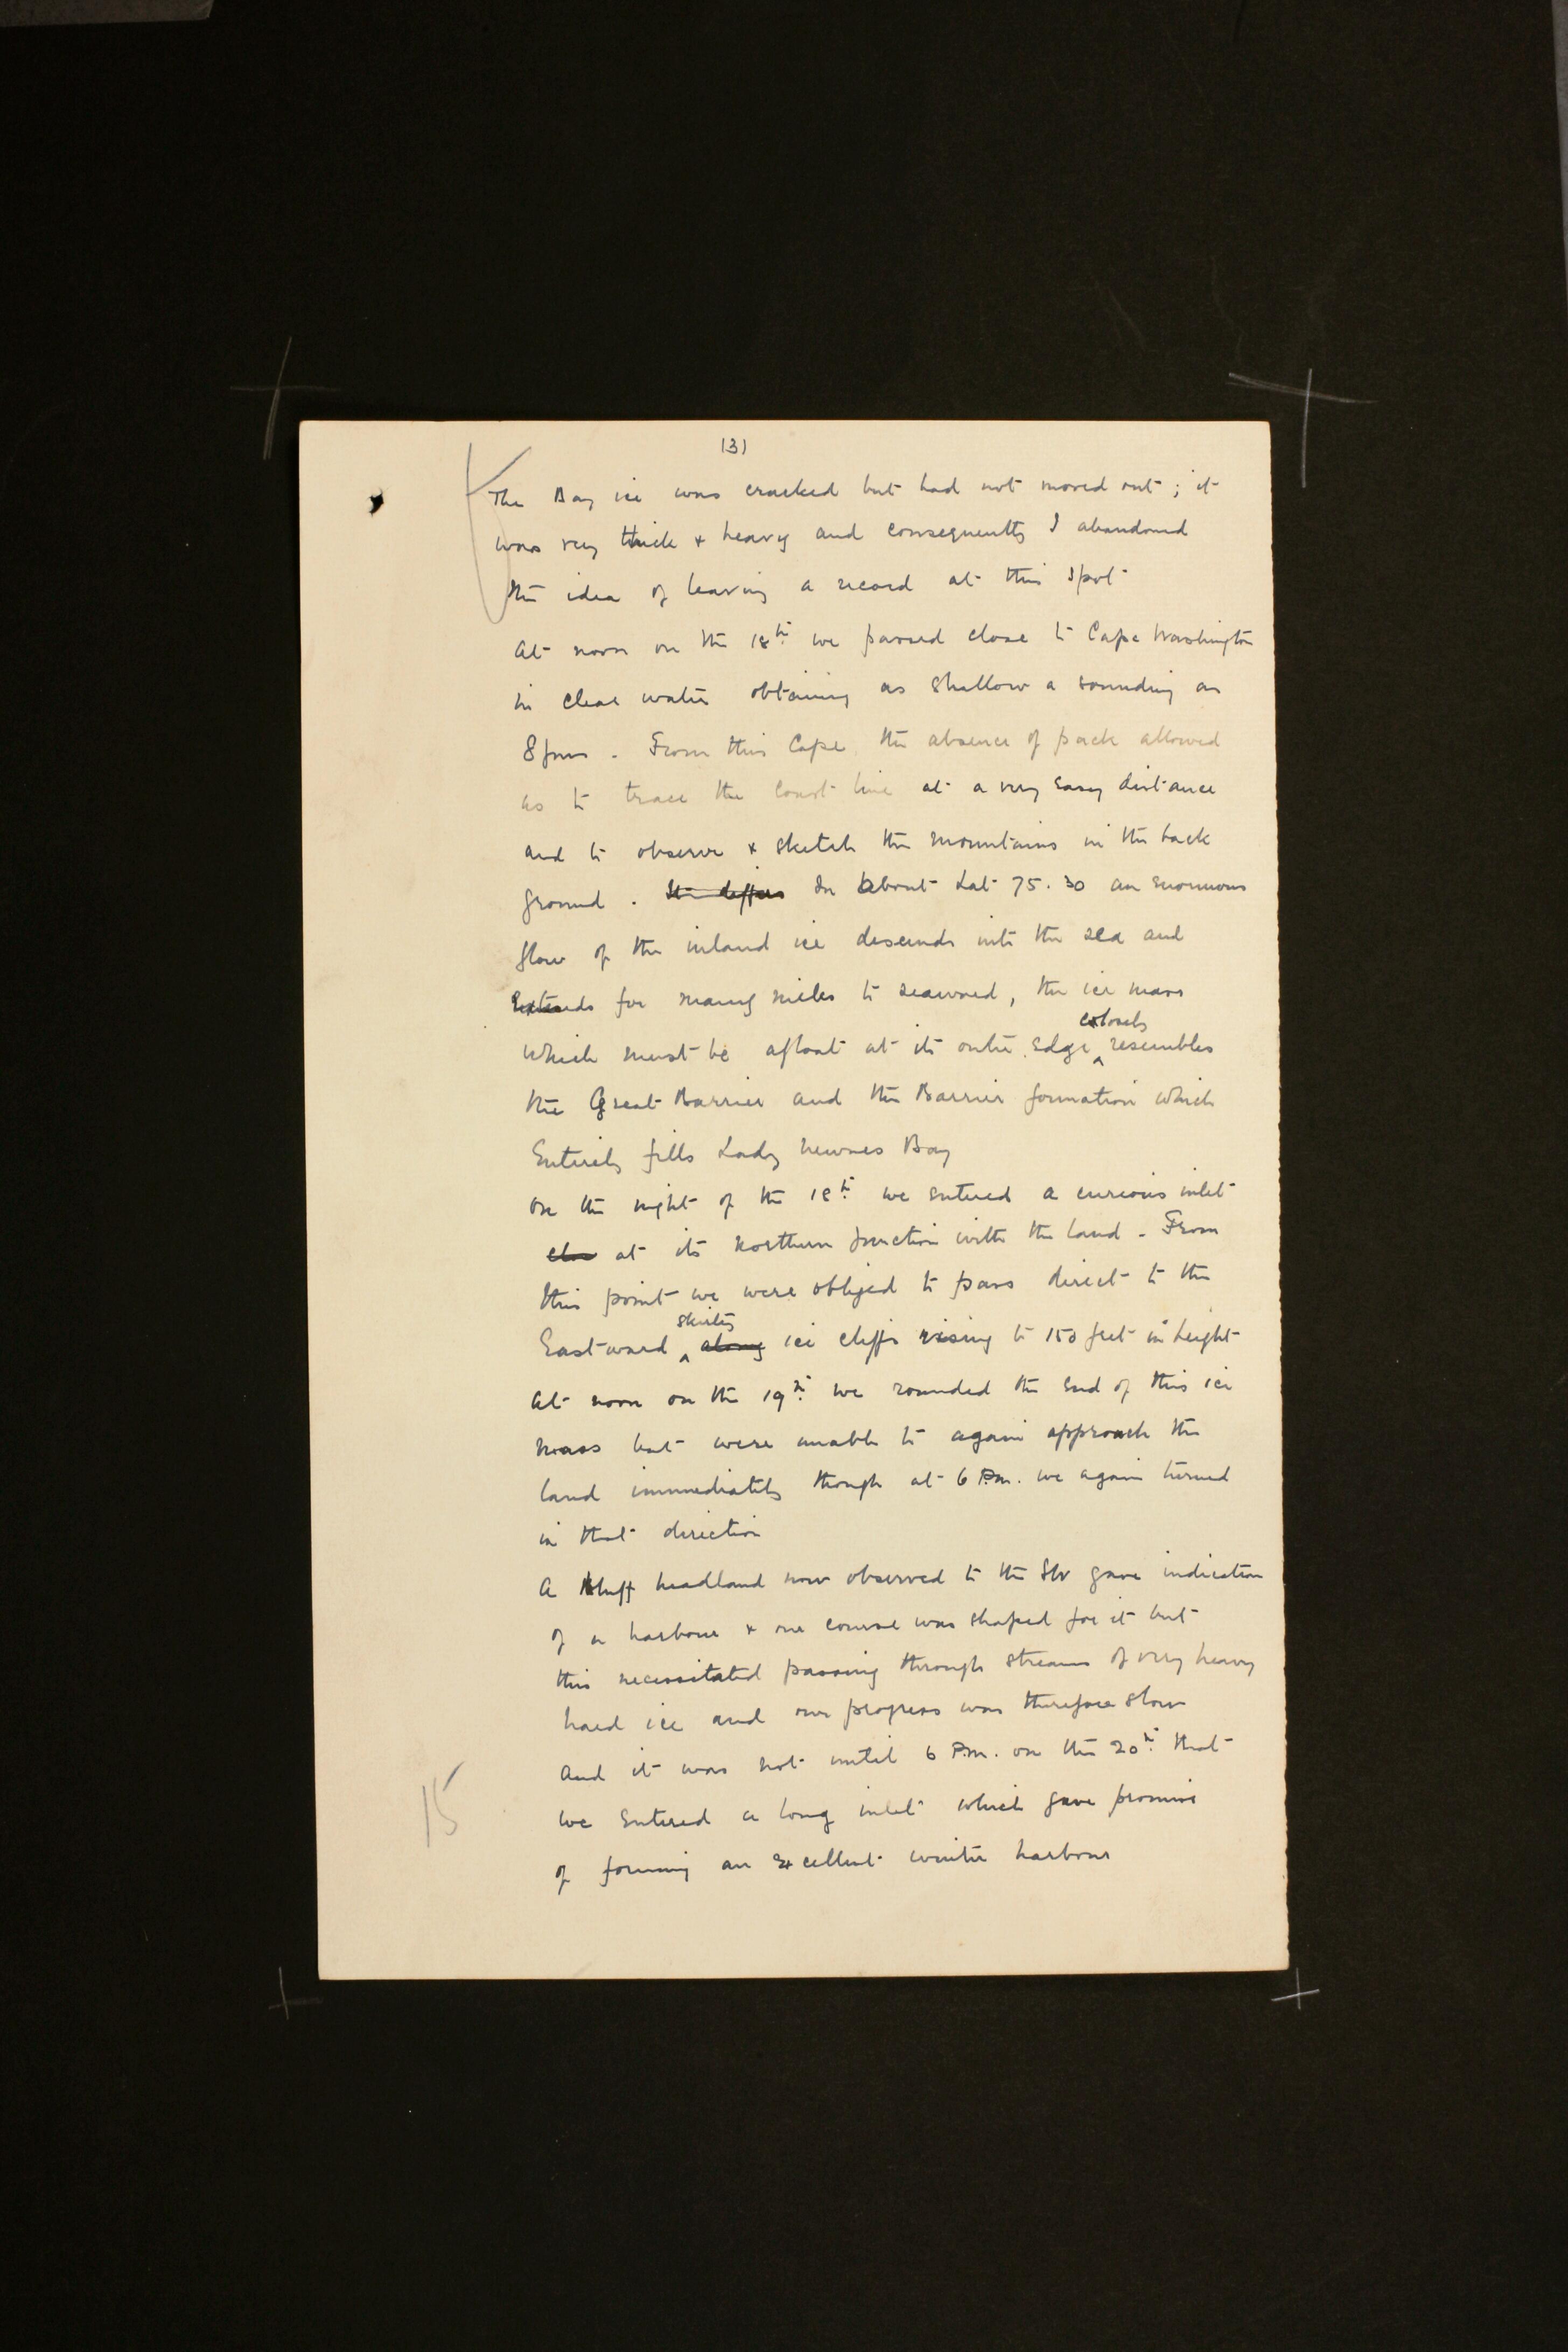 (3)
The Bay ice was cracked but had not moved out; it
was very thick & heavy and consequently I abandoned
the idea of leaving a record at this spot
At noon on the 18th we passed close to Cape Washington
in clear water obtaining as shallow a sounding as
8 fms. From this Cape the absence of pack allowed
us to trace the coast line at a very easy distance
and to observe & sketch the mountains in the back
ground. It differs In about Lat 75.30 an enormous
flow of the inland ice descends into the sea and
Extends for many miles to seaward, the ice mass
closely
which must be afloat at its outer edge ^ resembles
the Great Barrier and the Barrier formation which
Entirely fills Lady Newnes Bay
On the night of the 18th we entered a curious inlet
close at its Northern junction with the land. From
this point we were obliged to pass direct to the
skirting
Eastward ^ along ice cliffs rising to 150 feet in height
At noon on the 19th we rounded the End of this ice
mass but were unable to again approach the
land immediately though at 6 P.m. we again turned
in that direction
A bluff headland now observed to the SW gave indication
of a harbour & our course was shaped for it but
this necessitated passing through streams of very heavy
hard ice and our progress was therefore slow
And it was not until 6 P.m. on the 20th that
we Entered a long inlet which gave promise
of forming an Excellent winter harbour
15